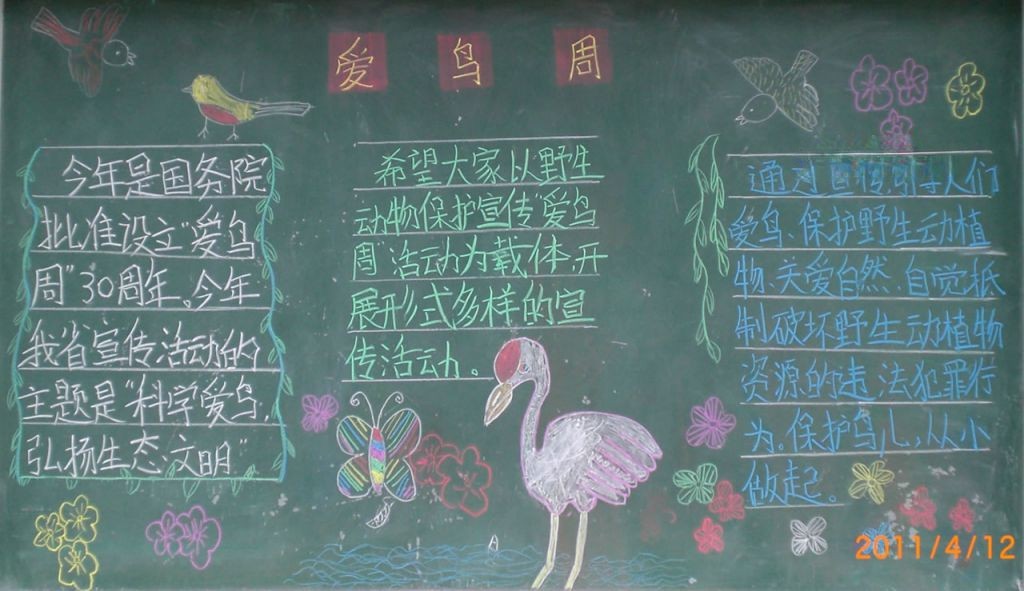 爱鸟周
今年是国务院
批准设立"爱鸟
周"30周年。今年
我省宣传活动的
主题是"科学爱鸟,
弘扬生态文明"
希望大家以野生
动物保护宣传"爱鸟
周"活动为载体,开
展形式多样的宣
传活动。
通过宣传,引导人们
爱鸟、保护野生动植
物、关爱自然、自觉抵
制破坏野生动植物
资源的违法犯罪行
为。保护鸟儿,从小
做起。
2011/4/12